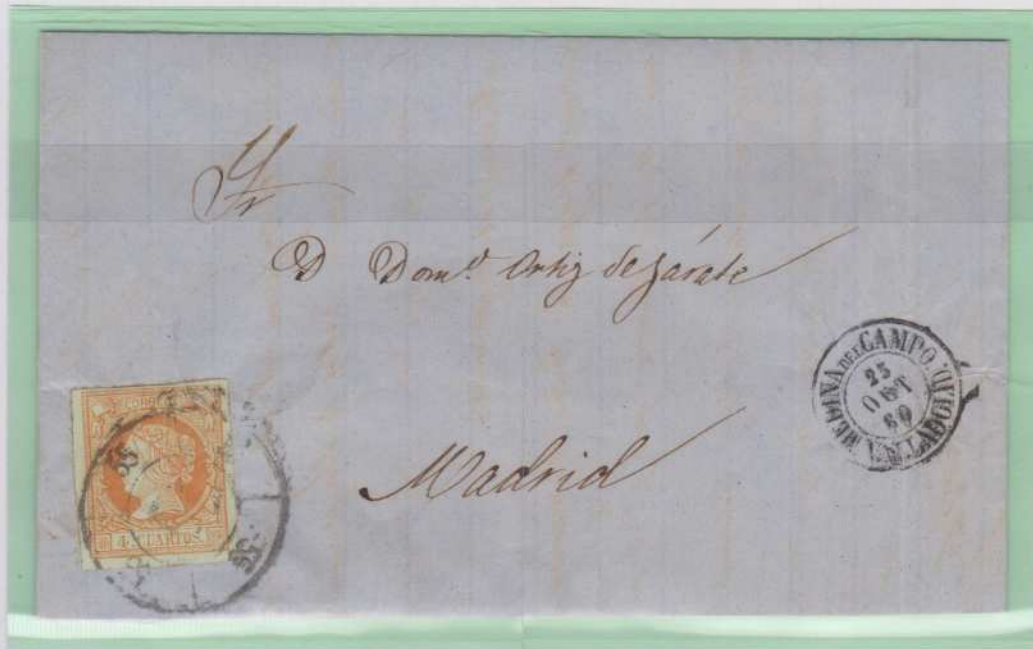 Sr
D Dom.º Ortiz de Zárate
Madrid
MEDINA DEL CAMPO.
25
OCT
60
VALLADOLID.
4 CUARTOS.